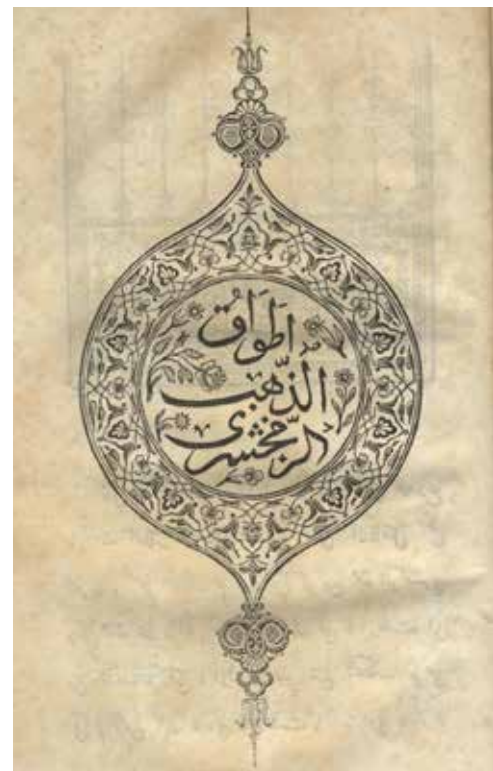 اَطَوَاقُ
الذَّهب
الزّمخشری